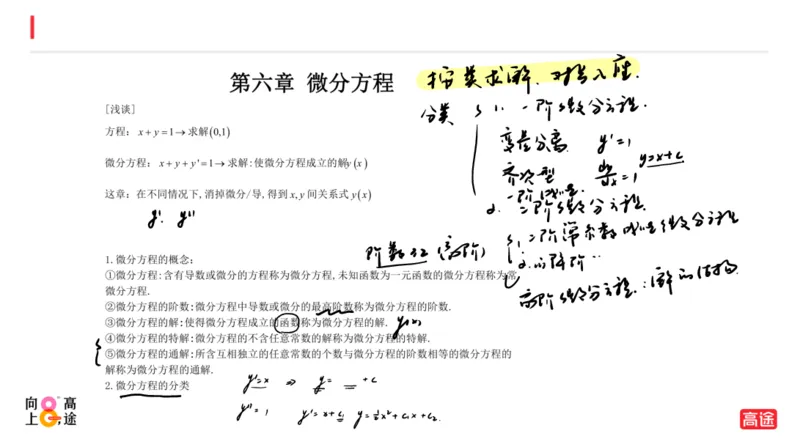 第六章 微分方程
按类求解.对号入座.
[浅谈]
分类 1. 一阶微分方程.
方程: x+y=1→求解(0,1)
变量分离 y'=1
y=x+c
微分方程: x+y+y'=1→求解:使微分方程成立的解y(x)
齐次型 dy/dx=1
一阶线性.
这章: 在不同情况下,消掉微分/导,得到x,y间关系式y(x)
2. 二阶微分方程.
y'. y''
1. 二阶常系数线性微分方程
阶数≥2 (高阶)
2. 可降阶
1.微分方程的概念:
①微分方程:含有导数或微分的方程称为微分方程,未知函数为一元函数的微分方程称为常
微分方程.
高阶线性微分方程.:解的结构.
②微分方程的阶数:微分方程中导数或微分的最高阶数称为微分方程的阶数.
③微分方程的解:使得微分方程成立的函数称为微分方程的解. y(x)
④微分方程的特解:微分方程的不含任意常数的解称为微分方程的特解.
⑤微分方程的通解:所含互相独立的任意常数的个数与微分方程的阶数相等的微分方程的
解称为微分方程的通解.
2.微分方程的分类
y'=x ⇒ y= +c
y''=1 y'=x+c₁ y=½x²+c₁x+c₂.
向上高途
高途